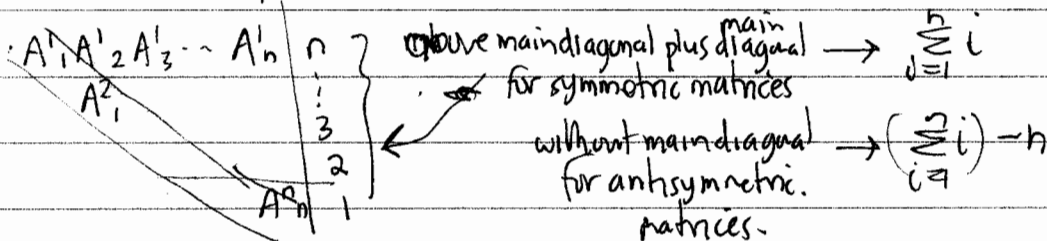 A¹₁ A¹₂ A¹₃ ... A¹ₙ n } above main diagonal plus main diagonal → Σ_{j=1}^{n} i
A²₁ ⋮ for symmetric matrices
3
2 without main diagonal → (Σ_{i=1}^{n} i) - n
Aⁿₙ 1 for antisymmetric.
matrices.